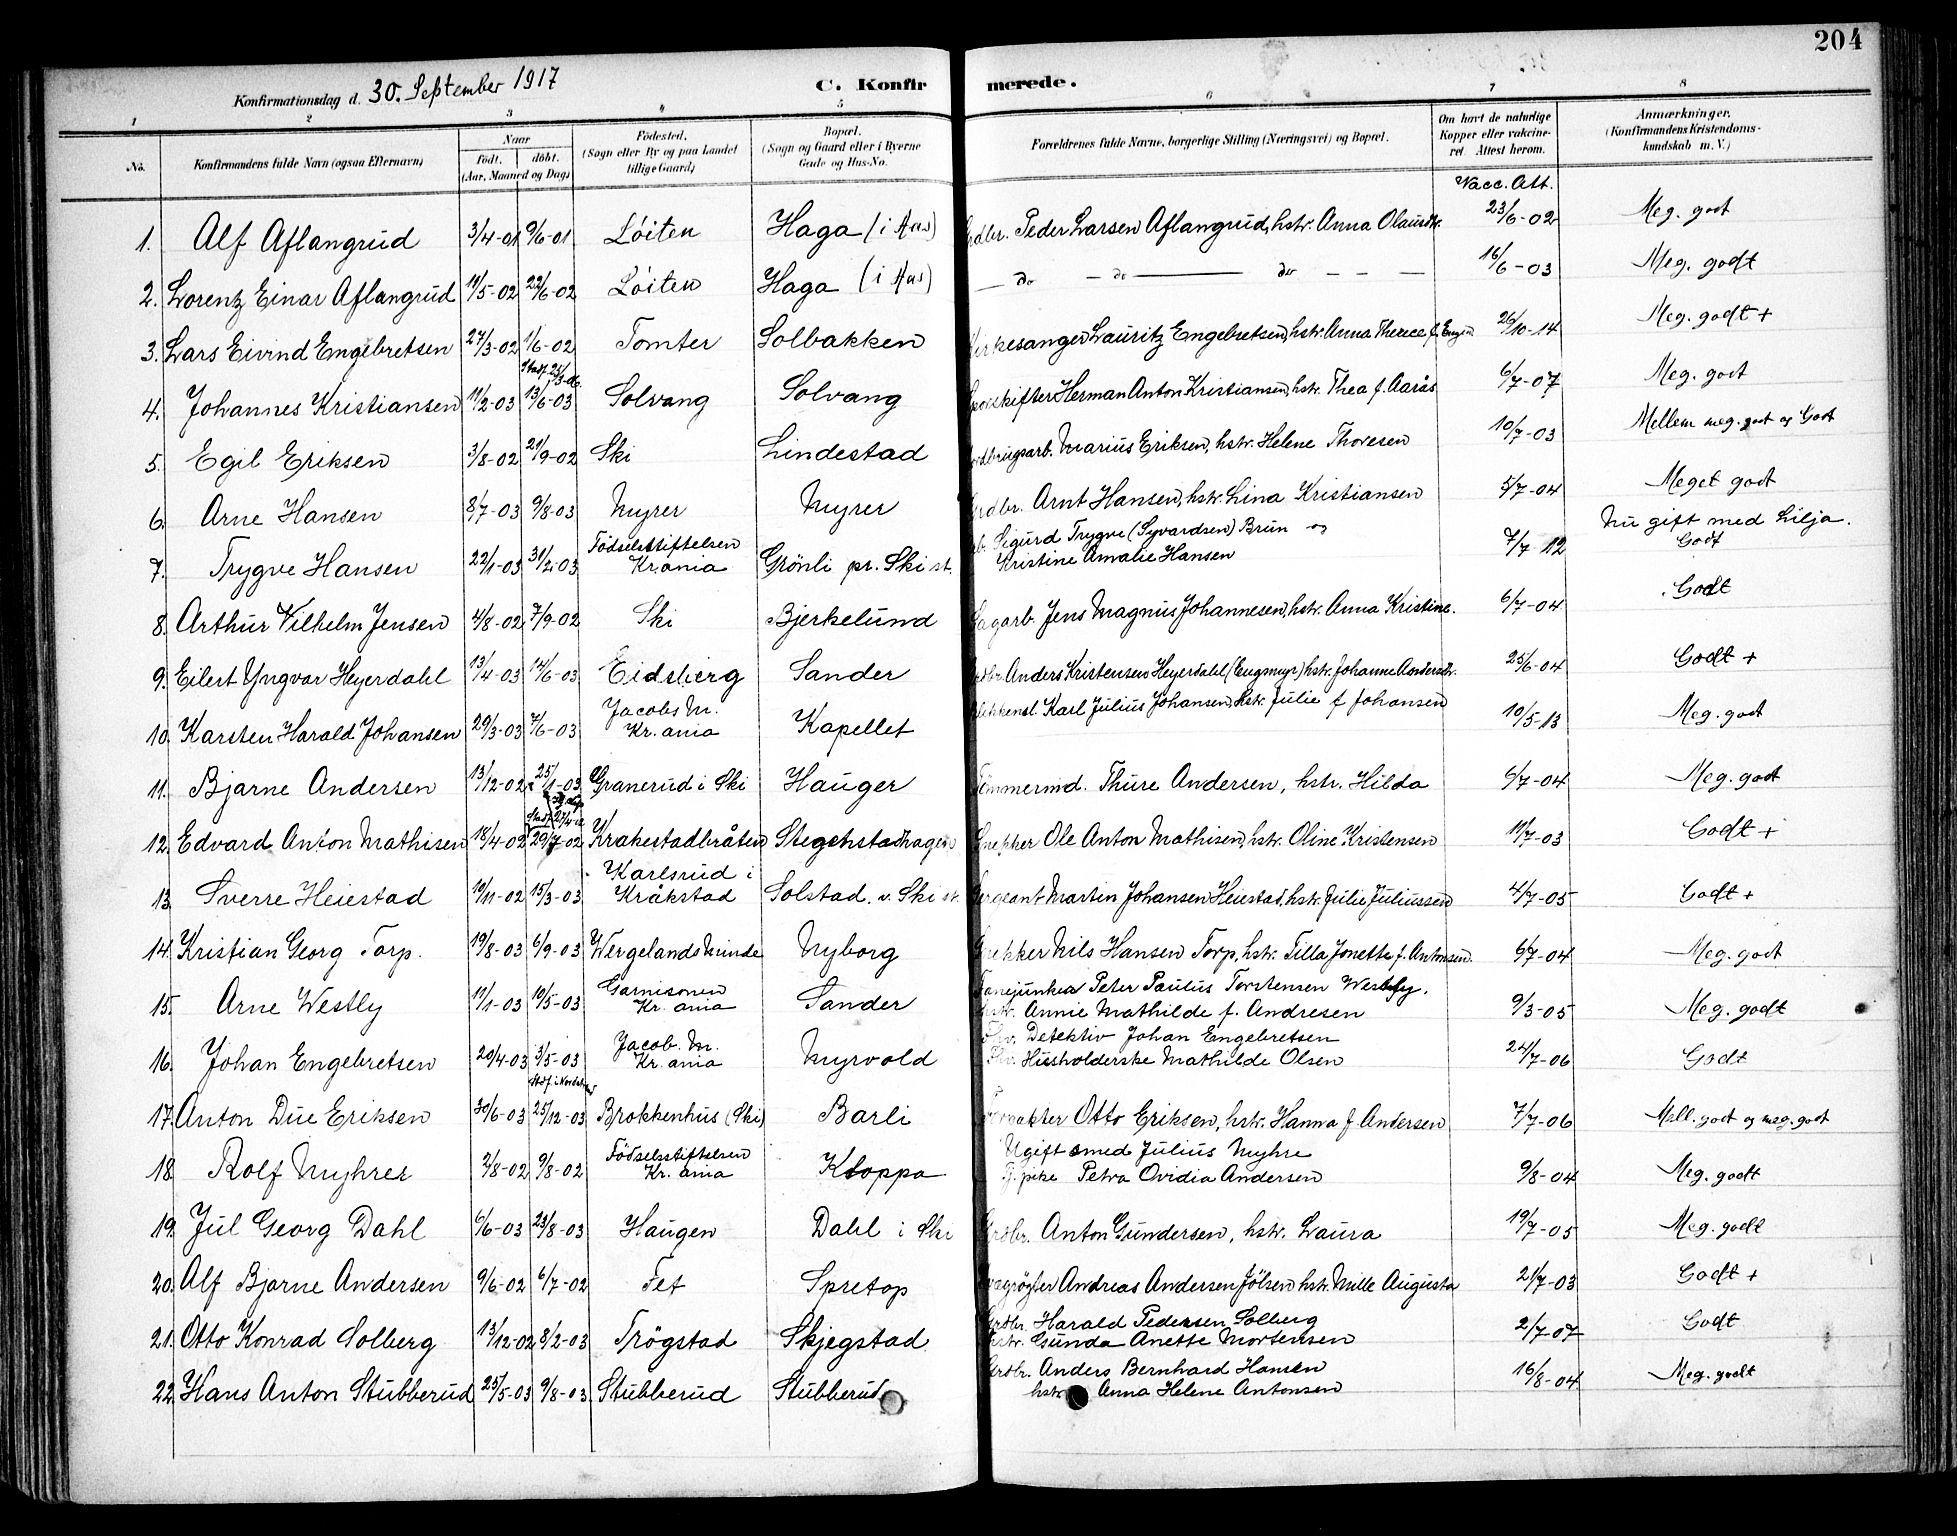 204
Konfirmationsdag d. 30. September 1917
C. Konfirmerede.
1 2 3 4 5 6 7 8
No. Konfirmandens fulde Navn (ogsaa Efternavn) Naar født. døbt. (Aar, Maaned og Dag) Fødested. (Sogn eller By og paa Landet tillige Gaard) Bopæl. (Sogn og Gaard eller i Byerne Gade og Hus-No. Forældrenes fulde Navne, borgerlige Stilling (Næringsvei) og Bopæl. Om havt de naturlige Kopper eller vakcineret. Attest herom. Anmærkninger. (Konfirmandens Kristendomskundskab m. V.)
Vacc. Att.
1. Alf Aflangrud 3/4-01 9/6-01 Löiten Haga (i Aas) Grdbr. Peder Larsen Aflangrud, hstr. Anna Olausdtr. 23/6-02 Meg. godt
2. Lorenz Einar Aflangrud 11/5-02 22/6-02 Löiten Haga (i Aas) — do — do — do — — — 16/6-03 Meg. godt
3. Lars Eivind Engebretsen 27/3-02 1/6-02 Tomter Solbakken Kirkesanger Lauritz Engebretsen, hstr. Anna Therece f. Engen 26/10-14 Meg. godt +
4. Johannes Kristiansen 11/2-03 13/6-03 Solvang Solvang Sporskifter Herman Anton Kristiansen, hstr. Thea f. Aarås 6/7-07 Meg. godt
5. Egil Eriksen 3/8-02 21/9-02 Ski Lindestad Jordbrugsarb. Marius Eriksen, hstr. Helene Thoresen 10/7-03 Mellem meg. godt og Godt
6. Arne Hansen 8/7-03 9/8-03 Myrer Myrer Grdbr. Arnt Hansen, hstr. Lina Kristiansen 5/7-04 Meget godt
7. Trygve Hansen 22/1-03 31/2-03 Födselsstiftelsen Kr.ania Grönli pr. Ski st. Sigurd Trygve (Syvardsen) Brun og Kristine Amalie Hansen 7/7-12 Nu gift med Lilja. Godt
8. Arthur Vilhelm Jensen 4/8-02 7/9-02 Ski Bjerkelund Sagarb. Jens Magnus Johannesen, hstr. Anna Kristine. 6/7-04 Godt
9. Eilert Yngvar Heyerdahl 13/4-03 14/6-03 Eidsberg Sander Grdbr. Anders Kristensen Heyerdahl (Engmyr) hstr. Johanne Andersdtr. 25/6-04 Godt +
10. Karsten Harald Johansen 29/3-03 7/6-03 Jacobs M. Kr.ania Kapellet Karl Julius Johansen, hstr. Julie f Johansen 10/5-13 Meg. godt
11. Bjarne Andersen 13/12-02 25/1-03 Granerud i Ski Hauger Tömmermd. Thure Andersen, hstr. Hilda 6/7-04 Meg. godt
12. Edvard Anton Mathisen 18/4-02 29/7-02 Krakestadbråten Stegenstadhagen Snekker Ole Anton Mathisen, hstr. Oline Kristensen 11/7-03 Godt +
13. Sverre Heiestad 19/11-02 15/3-03 Karlsrud i Kråkstad Solstad. v. Ski st. Sergeant Martin Johansen Heiestad, hstr. Julie Juliussen 4/7-05 Godt +
14. Kristian Georg Torp. 19/8-03 6/9-03 Wergelands Minde Nyborg Snekker Nils Hansen Torp, hstr. Tilla Jonette f. Antonsen. 6/7-04 Meg. godt
15. Arne Westly 11/1-03 19/5-03 Garnisonen Kr.ania Sander Fanejunker Peter Paulus Torstensen Westly. hstr. Annie Mathilde f. Andresen 9/3-05 Meg. godt
16. Johan Engebretsen 20/4-03 3/5-03 Jacob. M. Kr.ania Myrvold Fhv. Detektiv Johan Engebretsen Fhv. Husholderske Mathilde Olsen 24/7-06 Godt
17. Anton Due Eriksen 30/6-03 25/12-03 Brokkenhus (Ski) Barli Otto Eriksen, hstr. Hanna f Andersen 7/7-06 Mell. godt og meg. godt
18. Rolf Myhrer 2/8-02 9/8-02 Födselsstiftelsen Kr.ania Kloppa Ugift smed Julius Myhre pike Petra Ovidia Andersen 9/8-04 Meg. godt
19. Jul Georg Dahl 6/6-03 23/8-03 Haugen Dahl i Ski Grdbr. Anton Gundersen, hstr. Laura 19/7-05 Meg. godt
20. Alf Bjarne Andersen 9/6-02 6/7-02 Fet Spretop Andreas Andersen Jölsen hstr. Mille Augusta 21/7-03 Godt +
21. Otto Konrad Solberg 13/12-02 8/2-03 Trögstad Skjegstad Grdbr. Harald Pedersen Solberg hstr. Gunda Anette Mortensen 2/7-07 Godt
22. Hans Anton Stubberud 25/5-03 9/8-03 Stubberud Stubberud Grdbr. Anders Bernhard Hansen hstr. Anna Helene Antonsen 16/8-04 Meg. godt